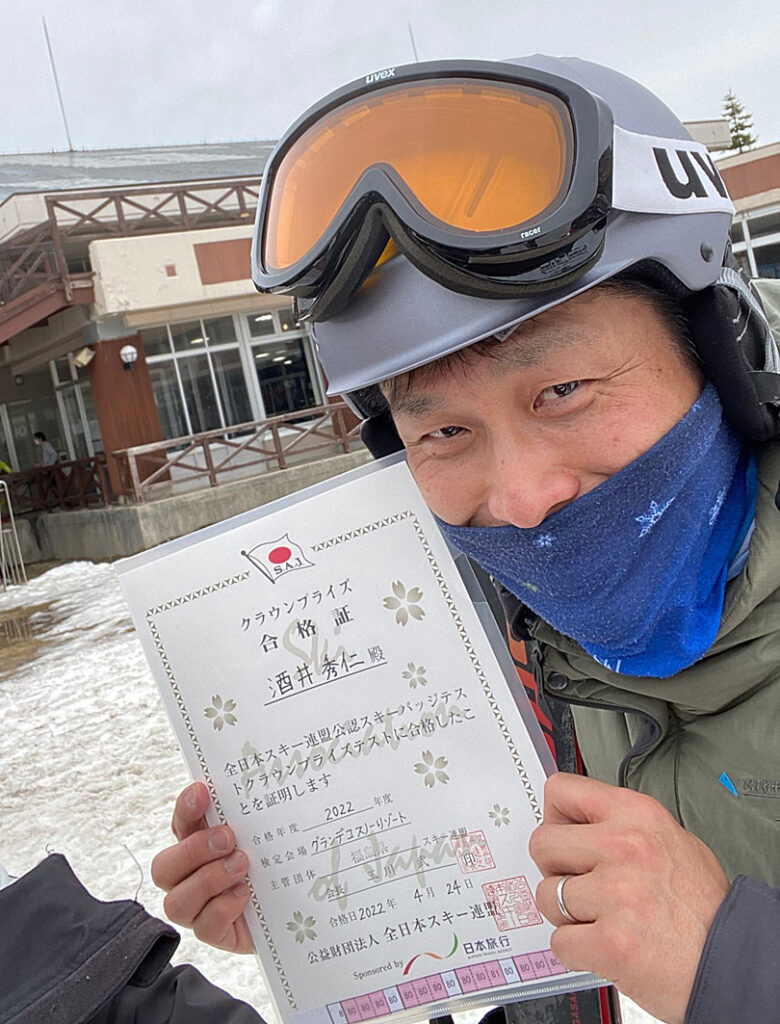 uvex
racer
uv
S.A.J
クラウンプライズ
合格証
酒井 秀仁 殿
全日本スキー連盟公認スキーバッジテス
トクラウンプライズテストに合格したこ
とを証明します
合格年度 2022 年度
検定会場 グランデコスノーリゾート
主管団体 福島県 スキー連盟
会長 玉川 武 印
合格日2022年 4月 24日
公益財団法人 全日本スキー連盟
Sponsored by 日本旅行
Ski
Association
of Japan
8 80 80 80 80 80 80 80 80 81 80 80 80